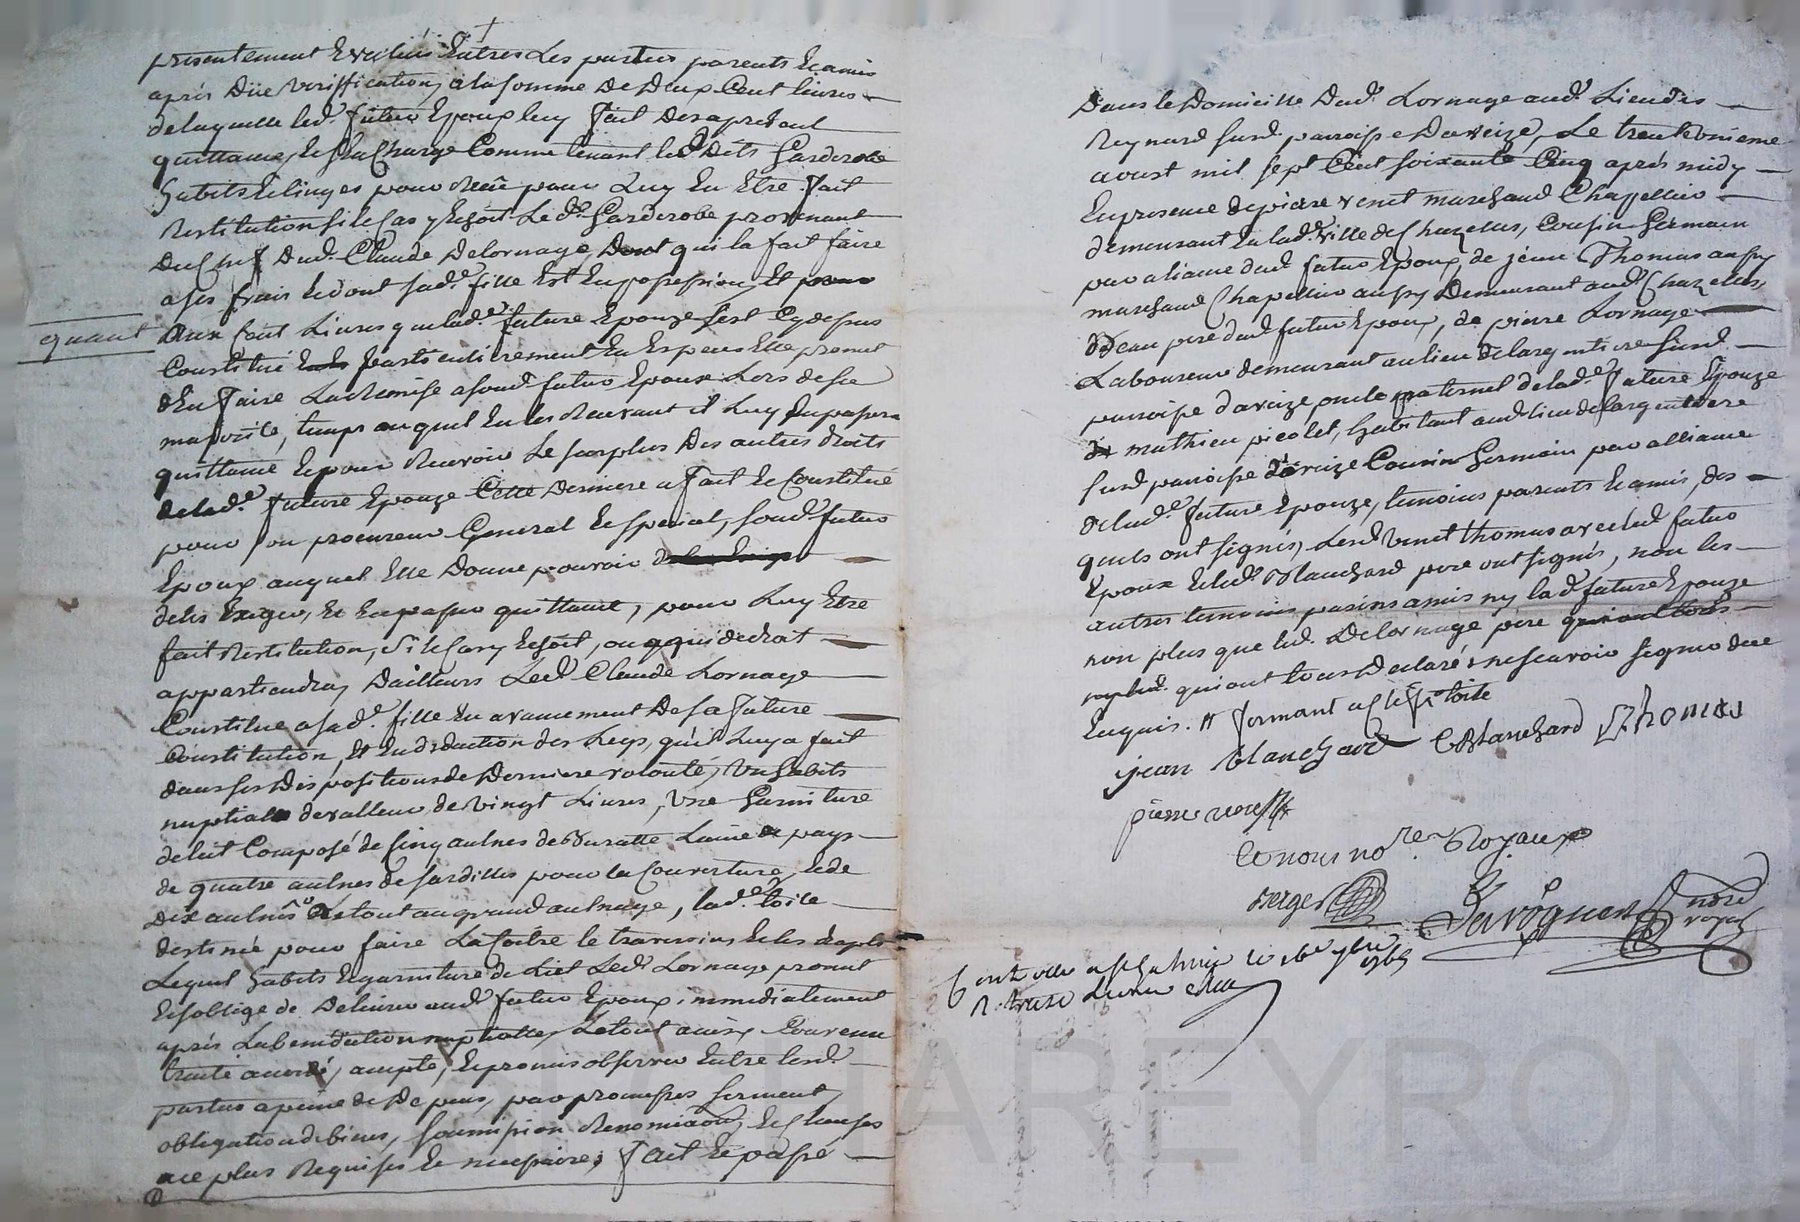 presentement Evalués Entres Les parties parents Et amis
après Düe veriffication, a la somme De Deux Cent livres
de laquelle led. futur Epoux luy fait Des apresent
quittance, Et s'En Charge Comme tenant lesd. Dits Garderobe
habits Et linges pour Receu pour Luy En Etre fait
Restitution si le Cas y Echoit Le d. Garderobe provenant
Du Chef Dud. Claude Delornage, Dont qui la fait faire
a ses frais Et dont sad.e fille Est En possession, Et pour
quant Aux Cent Livres que lad.e future Epouze s'est Cy dessus
Constitué Et les feasts entierement En Especes Elle promet
d'En faire La Remise a sond. futur Epoux Lors de sa
majorité, temps auquel En les Recevant il Luy En passera
quittance Et pour Recevoir Le surplus Des autres droits
de lad.e future Epouze Cette Derniere a fait Et Constitué
pour son procureur General Et special, sond. futur
Epoux auquel Elle Donne pouvoir
de les Exiger, Et En passer quittance, pour Luy Etre
fait Restitution, si le Cas y Echoit, ou a qui de droit
appartiendra, D'ailleurs Led. Claude Lornage
Constitue a sad.e fille En avancement De sa future
Constitution, Et En déduction des Legs, qu'il luy a fait
dans ses Dispositions de Derniere volonté, Un habits
nuptial de valleur de vingt Livres, Une Garniture
de Lit Composé de Cinq aulnes de Buratte Laine de pays
de quatre aulnes de sardilles pour la Couverture, Et de
Dix aulnes De tout au grand aulnage, lad.e toile
destinée pour faire La Coëtre le traversins Et les draps
Lequel habits Et garniture de Liet Led. Lornage promet
Et s'oblige de Delivrer aud. futur Epoux immediatement
après La benediction nuptialle, Le tout ainsy Convenu
traité accordé, accepté, Et promis observer Entre lesd.
parties a peine de Depens, par promesses serment,
obligation de biens, soumission Renonciaõn, Et Clauses
a ce plus Requises Et necessaires, fait Et passé
Dans le Domicille Dud. Lornage aud. Lieu des
Reynard susd. paroisse D'aveize, Le trente unieme
aoust mil sept Cent soixante Cinq après midy
En presence de pierre venet marchand Chapellier
demeurant En lad.e ville de Chazelles, Cousin Germain
par aliance dud. futur Epoux, de jean Thomas aussy
marchand Chapellier aussy Demeurant aud. Chazelles,
Beau pere dud. futur Epoux, de pierre Lornage
Laboureur demeurant au lieu de largentiere susd.
paroisse d'aveize oncle paternel de lad.e future Epouze
de mathieu picolet, habitant aud. lieu de largentiere
susd. paroisse d'aveize Cousin Germain par alliance
de lad.e future Epouze, temoins parents Et amis, des
quels ont signés, Lesd. Venet thomas avec led. futur
Epoux Et led. Blanchard pere ont signés, non les
autres temoins parsins amis ny lad.e future Epouze
non plus que led. Delornage père
qui ont tous Declaré ne sçavoir signer de ce
Enquis. #
jean Blanchard CBlanchard J Thomas
pierre venet
Et nous no.res Royaux
berger
not.re
royal
Controllé a St Galmier le 16e 7bre 1765
R. treize livres